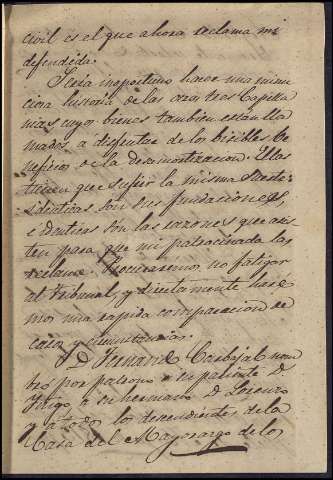 civil es el que ahora reclama mi
defendida.
Seria inoportuno hacer una minu
ciosa historia de las otras tres Capella
nias, cuyos bienes tambien están lla
mados, a disfrutar de los bisibles be
neficios de la desamortizacion. Ellas
tienen que sufrir la misma suerte:
identicas son sus fundaciones,
e identicas son las razones que asis
ten para que mi patrocinada las
reclame. Procuraremos no fatigar
al Tribunal, y directamente hare
mos una rapida comparacion de
cosas y circunstancias.
D. Fernando Carbajal nom
bró por patrono a su pariente D.
Iñigo a su hermano D. Lorenzo
y a todos los descendientes de la
Casa del Mayorazgo de los